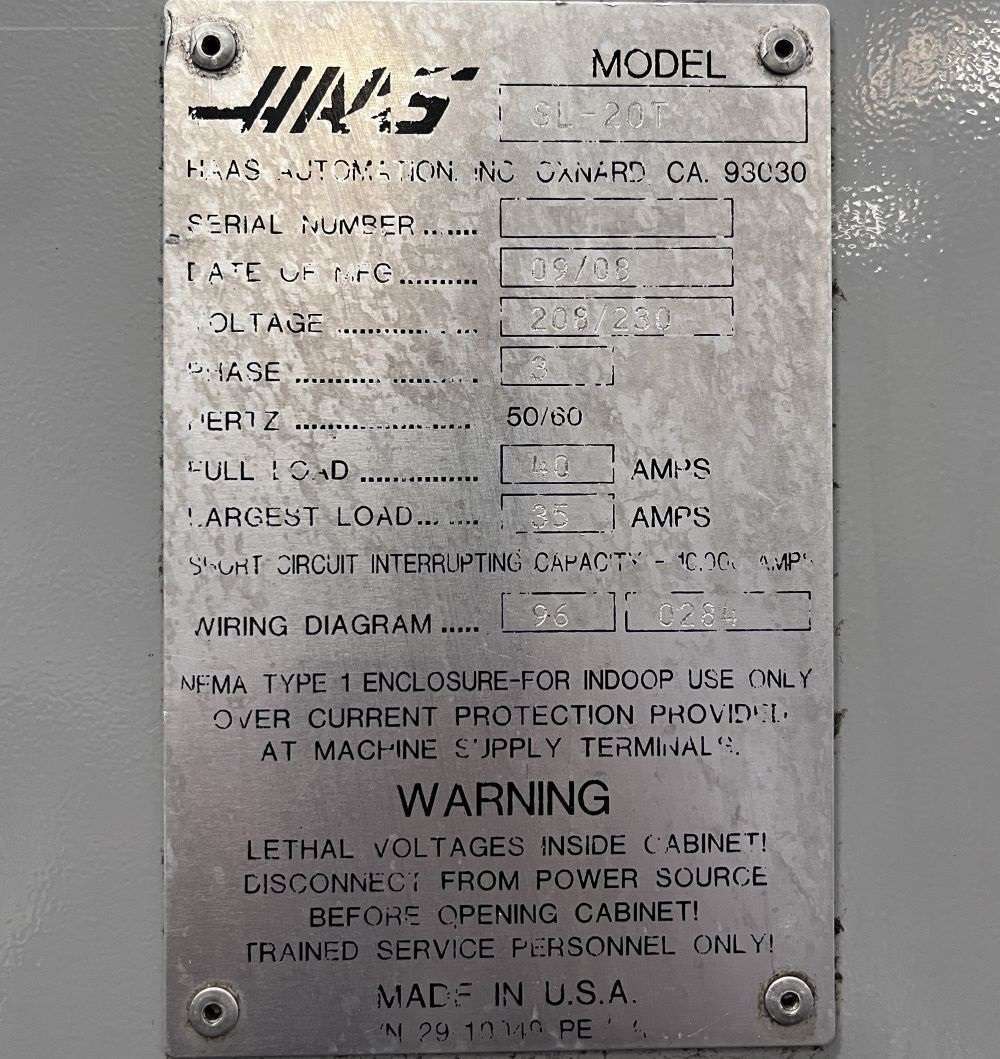 HAAS
MODEL
SL-20T
HAAS AUTOMATION, INC OXNARD, CA. 93030
SERIAL NUMBER .......
DATE OF MFG .......... 09/08
VOLTAGE .............. 208/230
PHASE .................... 3
HERTZ ................... 50/60
FULL LOAD ............. 40 AMPS
LARGEST LOAD ....... 35 AMPS
SHORT CIRCUIT INTERRUPTING CAPACITY - 10,000 AMPS
WIRING DIAGRAM ..... 96 0284
NEMA TYPE 1 ENCLOSURE-FOR INDOOR USE ONLY
OVER CURRENT PROTECTION PROVIDED
AT MACHINE SUPPLY TERMINALS.
WARNING
LETHAL VOLTAGES INSIDE CABINET!
DISCONNECT FROM POWER SOURCE
BEFORE OPENING CABINET!
TRAINED SERVICE PERSONNEL ONLY!
MADE IN U.S.A.
29